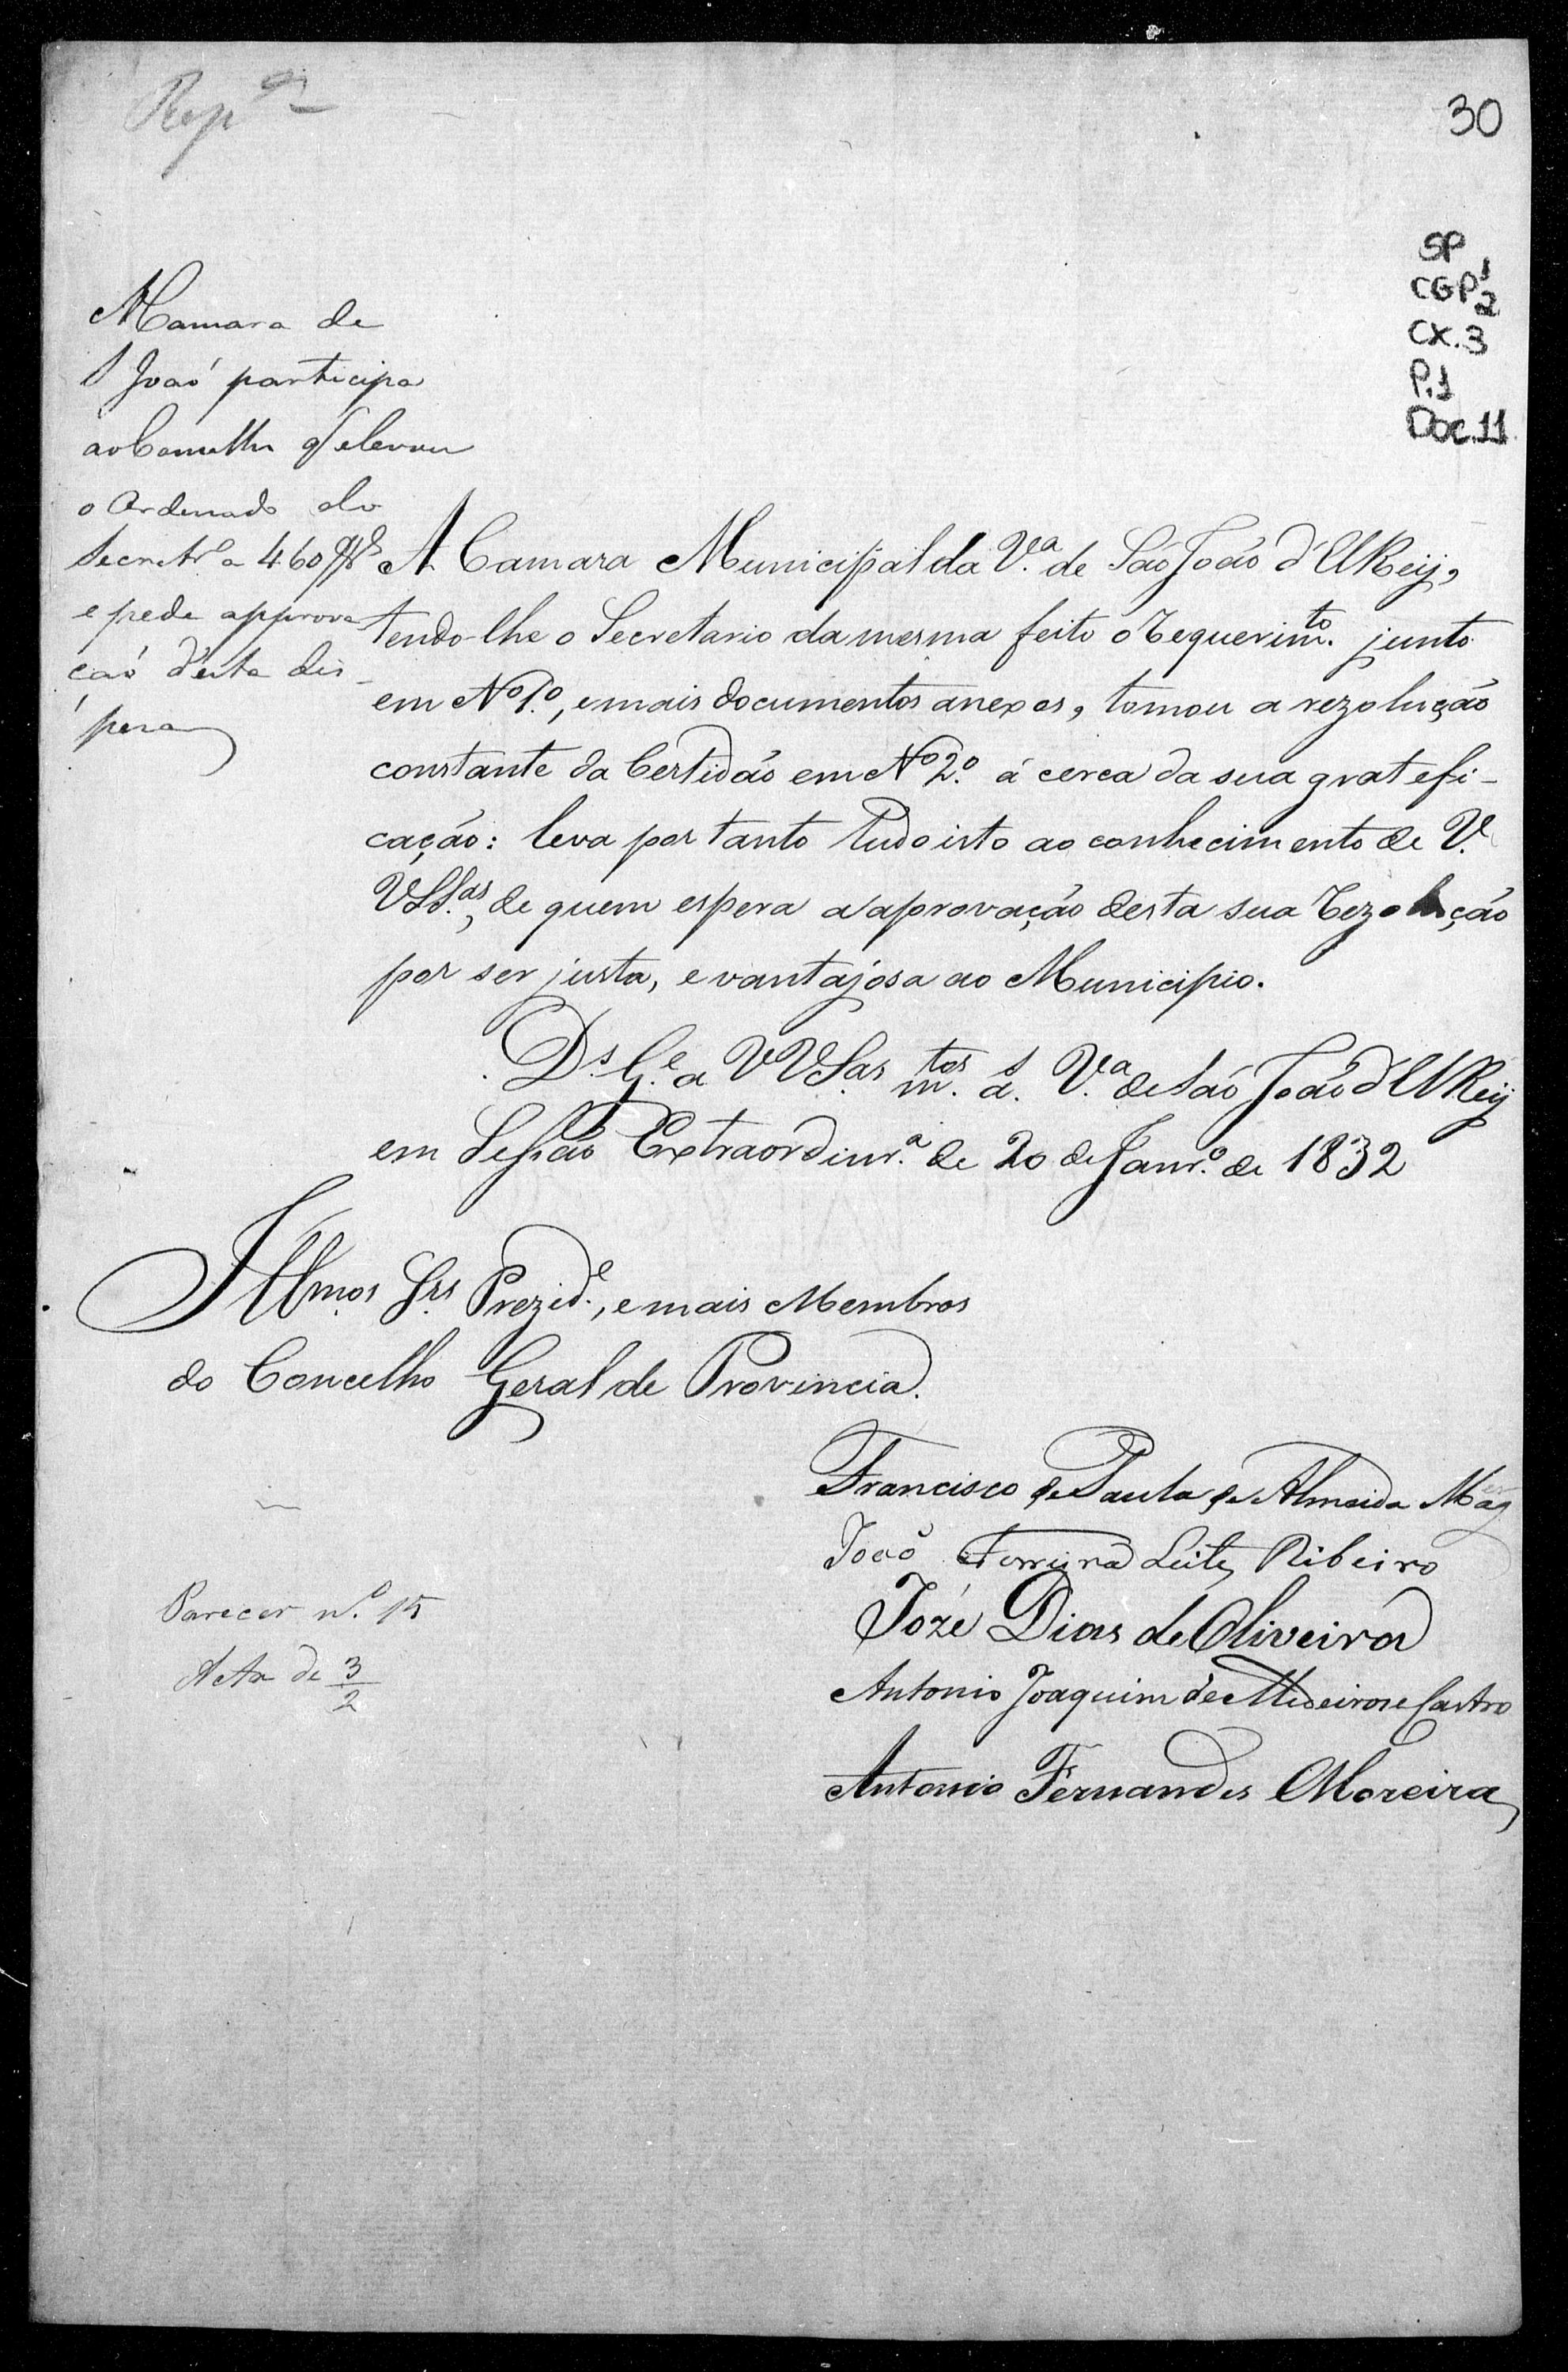 Rep.am
30
SP
CGP 1
2
CX.3
P.1
Doc.11
A Camara de
S Joaõ participa
ao Conselho q/ elevou
o Ordenado do
Secretr.o a 460$rs
e pede approva
caõ d'esta des-
peza
A Camara Municipal da V.a de São João d'ElReij,
tendo-lhe o Secretario da mesma feito o requerim.to junto
em No 1.o, e mais documentos anexos, tomou a rezolução
constante da Certidão em No 2.o á cerca da sua gratefi-
cação: leva por tanto tudo isto ao conhecimento de V.
VSS.as, de quem espera a aprovação desta sua rezolução
por ser justa, e vantajosa ao Municipio.
D.s G.e a VVS.as m.tos a.s V.a de São João d'ElReij
em Sessão Extraordinr.a de 20 de Janr.o de 1832
Illmos Srs Prezid.e, e mais Membros
do Concelho Geral de Provincia.
Francisco de Paula de Almeida Mag.es
João Ferreira Leite Ribeiro
Jozé Dias de Oliveira
Antonio Joaquim de Medeiros e Castro
Antonio Fernandes Moreira
Parecer n.o 15
Acta de 3/2